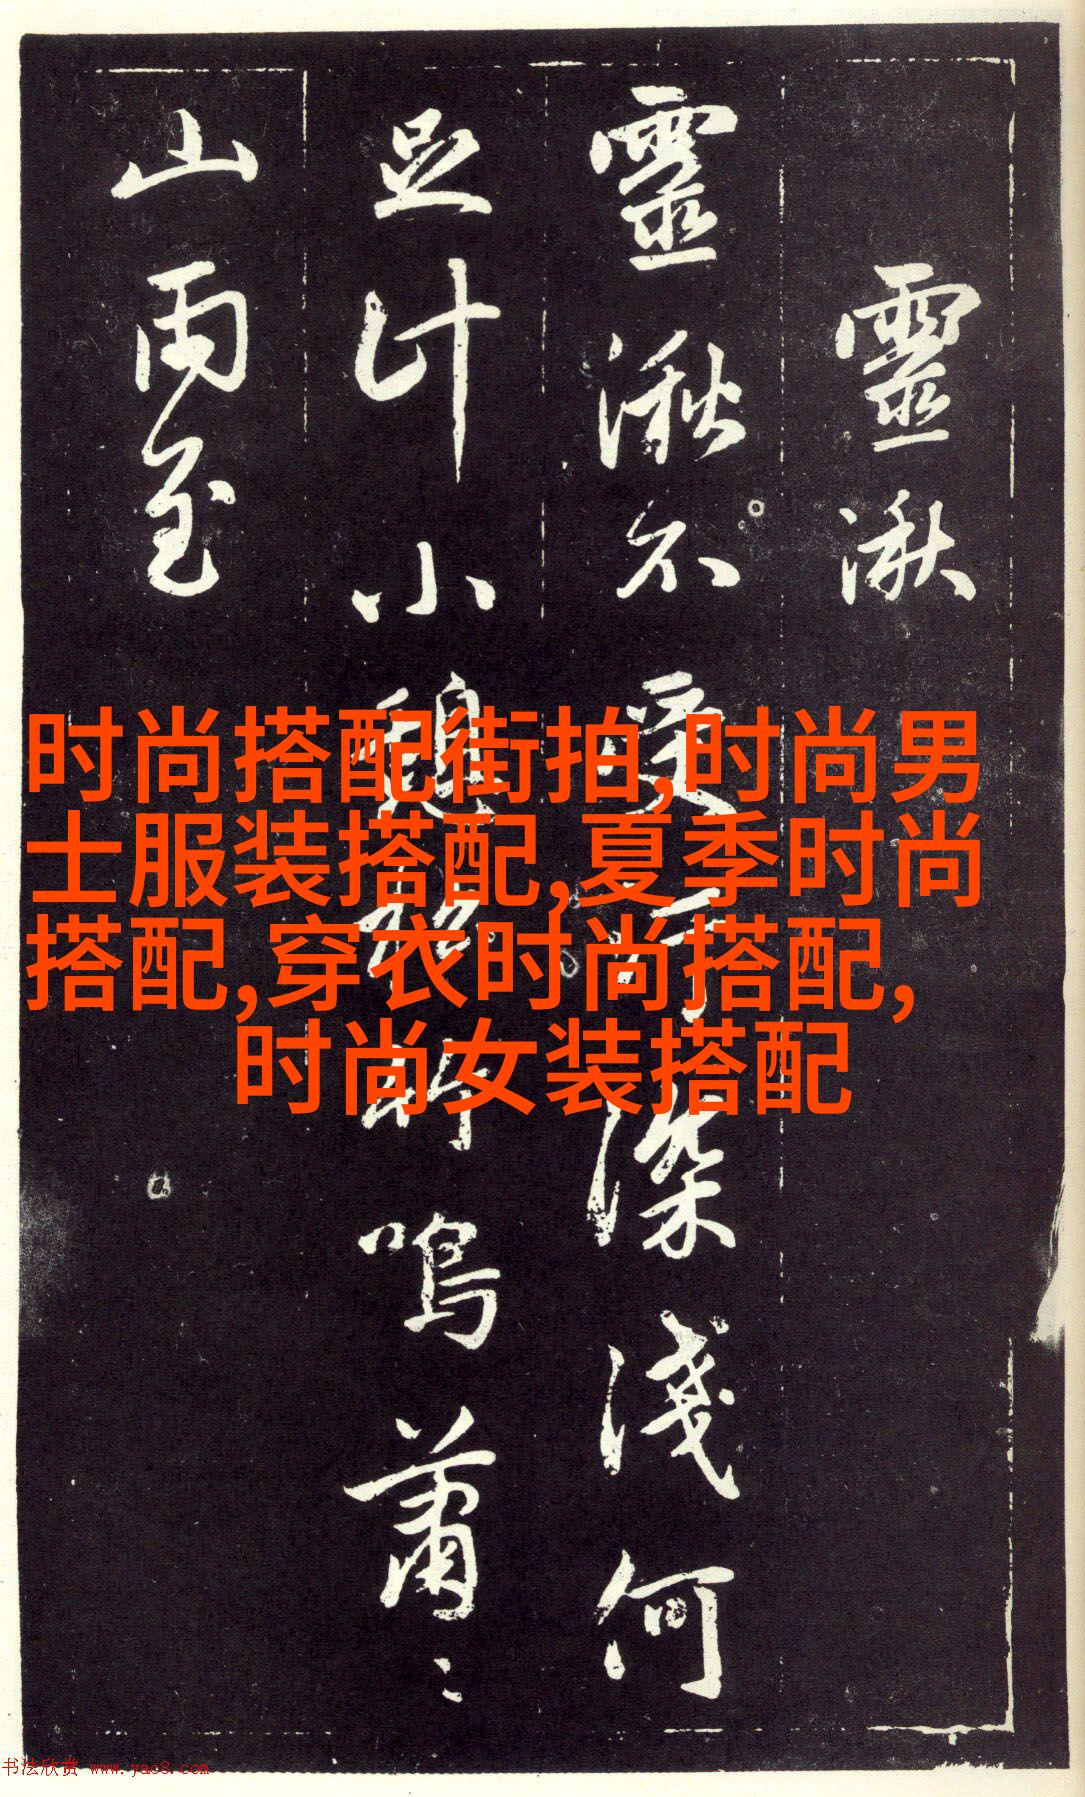 靈湫
靈湫不受深淺何
足計小鳴蕭〻
山雨至
时尚搭配街拍,时尚男
士服装搭配,夏季时尚
搭配,穿衣时尚搭配,
时尚女装搭配
书法欣赏 www.yac8.com